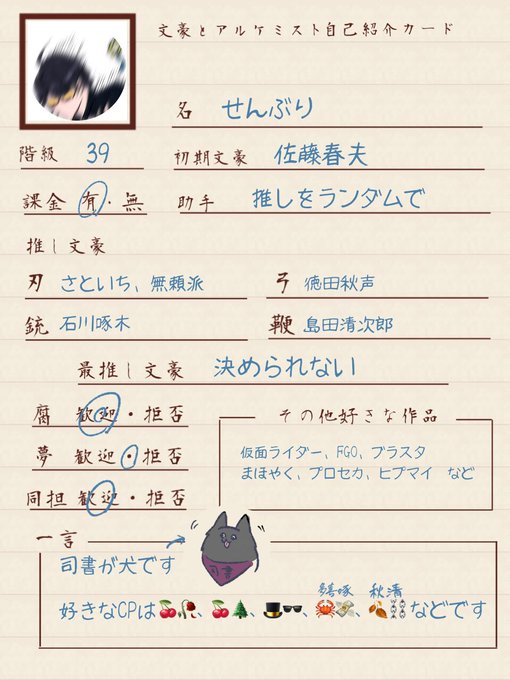 文豪とアルケミスト自己紹介カード
名 せんぶり
階級 39 初期文豪 佐藤春夫
課金 有・無 助手 推しをランダムで
推し文豪
刃 さといち、無頼派 弓 徳田秋声
銃 石川啄木 鞭 島田清次郎
最推し文豪 決められない
腐 歓迎・拒否
夢 歓迎・拒否
同担 歓迎・拒否
その他好きな作品
仮面ライダー、FGO、ブラスタ
まほやく、プロセカ、ヒプマイ など
一言
司書が犬です
司書
多喜啄 秋清
好きなCPは🍒🥀、🍒🌲、🎩🕶️、🦀💸、🍂⛓️などです